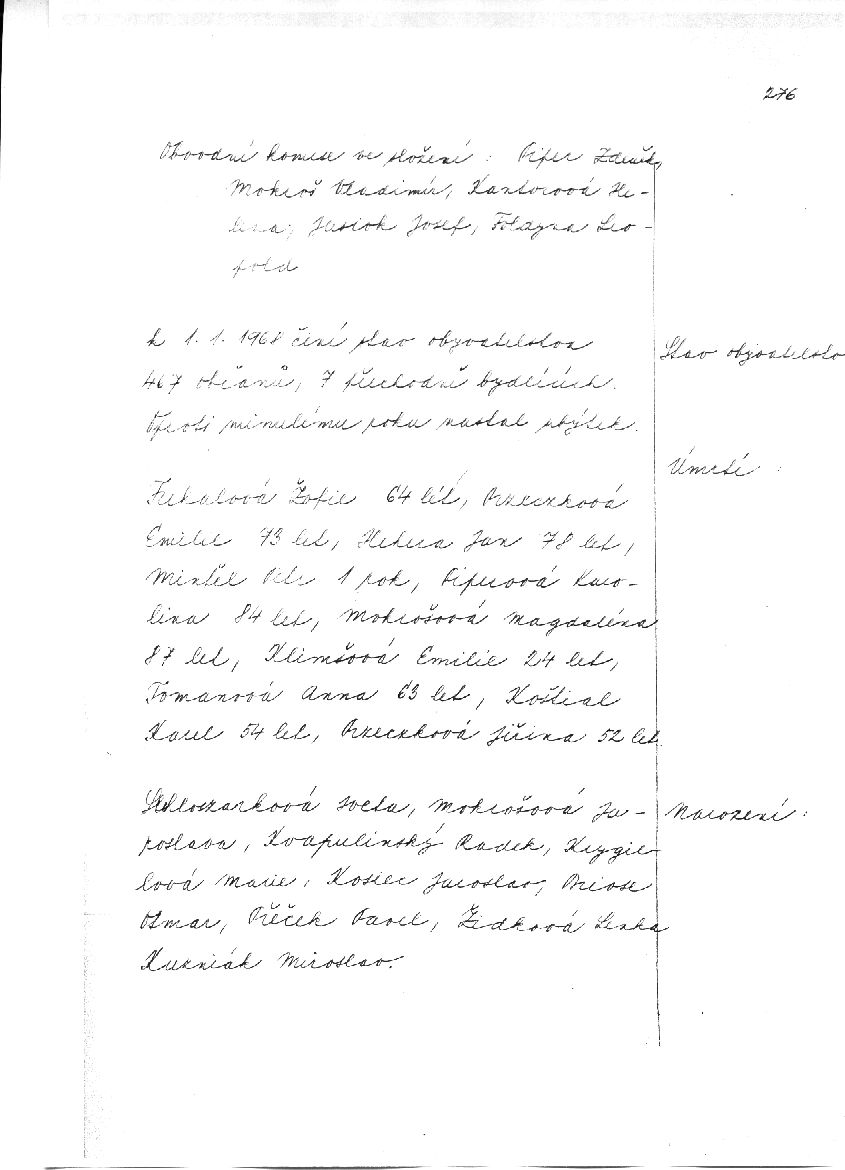 276
Obvodní komise ve složení: Pifer Zdeněk,
Mokroš Vladimír, Kantorová He-
lena, Jasiok Josef, Foldyna Leo-
pold
k 1. 1. 1968 činí stav obyvatelstva
Stav obyvatelstv
467 občanů, 7 přechodně bydlících.
Oproti minulému roku nastal úbytek.
Úmrtí:
Fukalová Žofie 64 let, Rzeczková
Emilie 73 let, Hekera Jan 78 let,
Mintěl Petr 1 rok, Piferová Karo-
lina 84 let, Mokrošová Magdaléna
87 let, Klimšová Emilie 24 let,
Tomanová Anna 63 let, Koštial
Karel 54 let, Rzeczková Jiřina 52 let
Szkloszarková Iveta, Mokrošová Ja-
Narození:
roslava, Kvapulinský Radek, Krygie-
lová Marie, Kostec Jaroslav,
Otmar, Píček Pavel, Židková Lenka
Kurniák Miroslav.